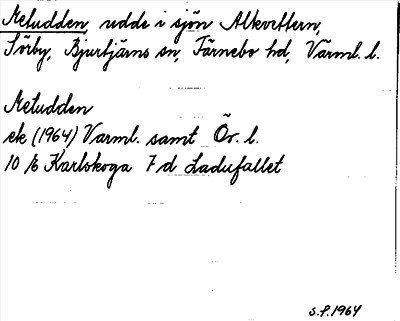 Metudden, udde i sjön Alkvettern,
Sörby, Bjurtjärns sn, Färnebo hd, Värml. l.
Metudden
ek (1964) Värml. samt Ör. l.
10 /6 Karlskoga 7 d Ladufallet
S.F. 1964